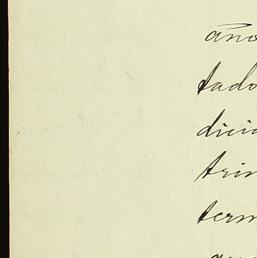 año
tado
dicia
trin
term